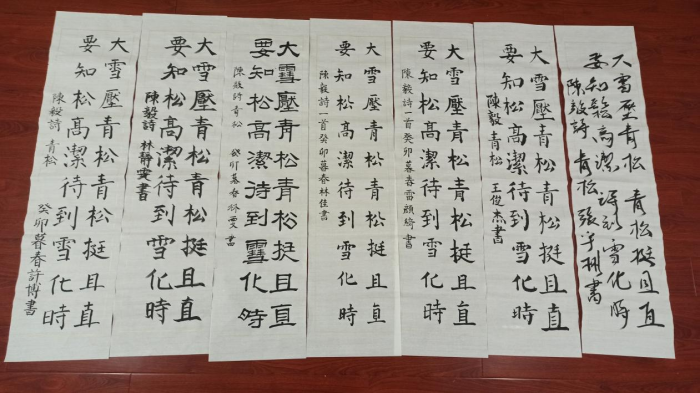 大雪壓青松青松挺且直
要知松高潔待到雪化時
陳毅詩青松張書
大雪壓青松青松挺且直
要知松高潔待到雪化時
陳毅青松王俊杰書
大雪壓青松青松挺且直
要知松高潔待到雪化時
陳毅詩一首癸卯暮春雷顏書
大雪壓青松青松挺且直
要知松高潔待到雪化時
陳毅詩一首癸卯暮春林佳書
大雪壓青松青松挺且直
要知松高潔待到雪化時
陳毅詩青松癸卯暮春林雯書
大雪壓青松青松挺且直
要知松高潔待到雪化時
陳毅詩林靜雯書
大雪壓青松青松挺且直
要知松高潔待到雪化時
陳毅詩青松
癸卯暮春許博書